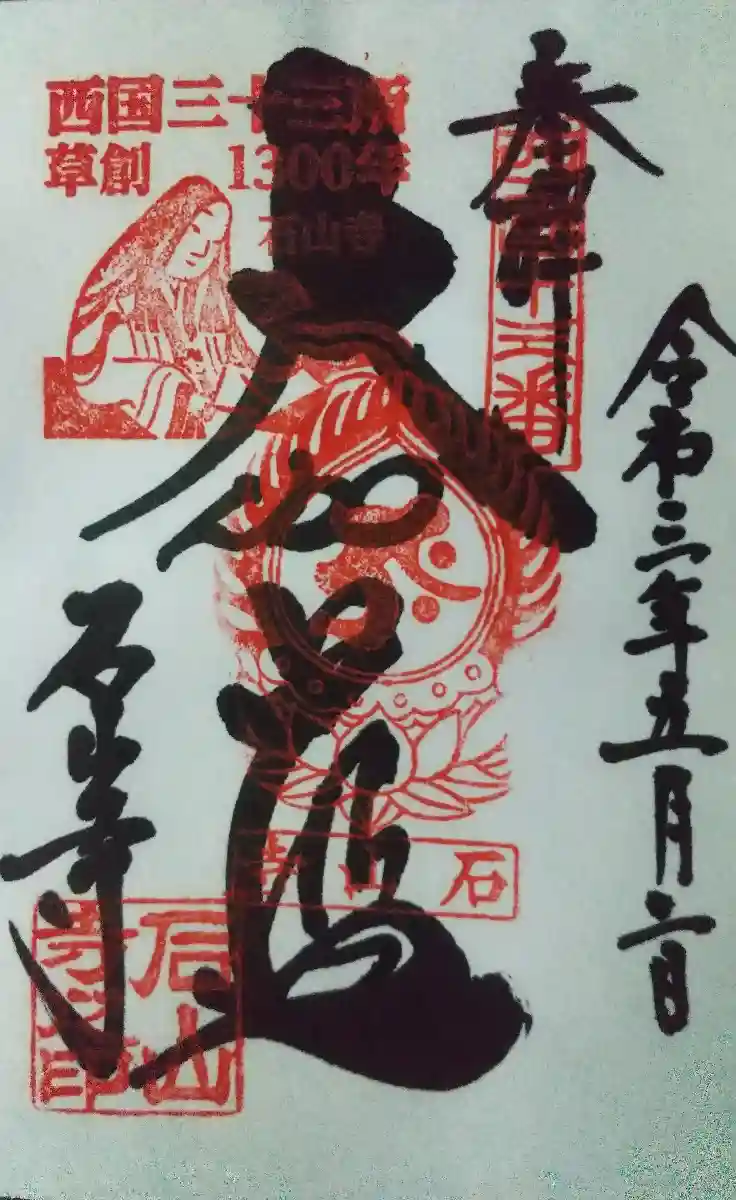 令和三年五月二日
奉拝
西国十三番
西国三十三所
草創 1300年
石山寺
大伽藍
石山寺
石山寺
石山寺